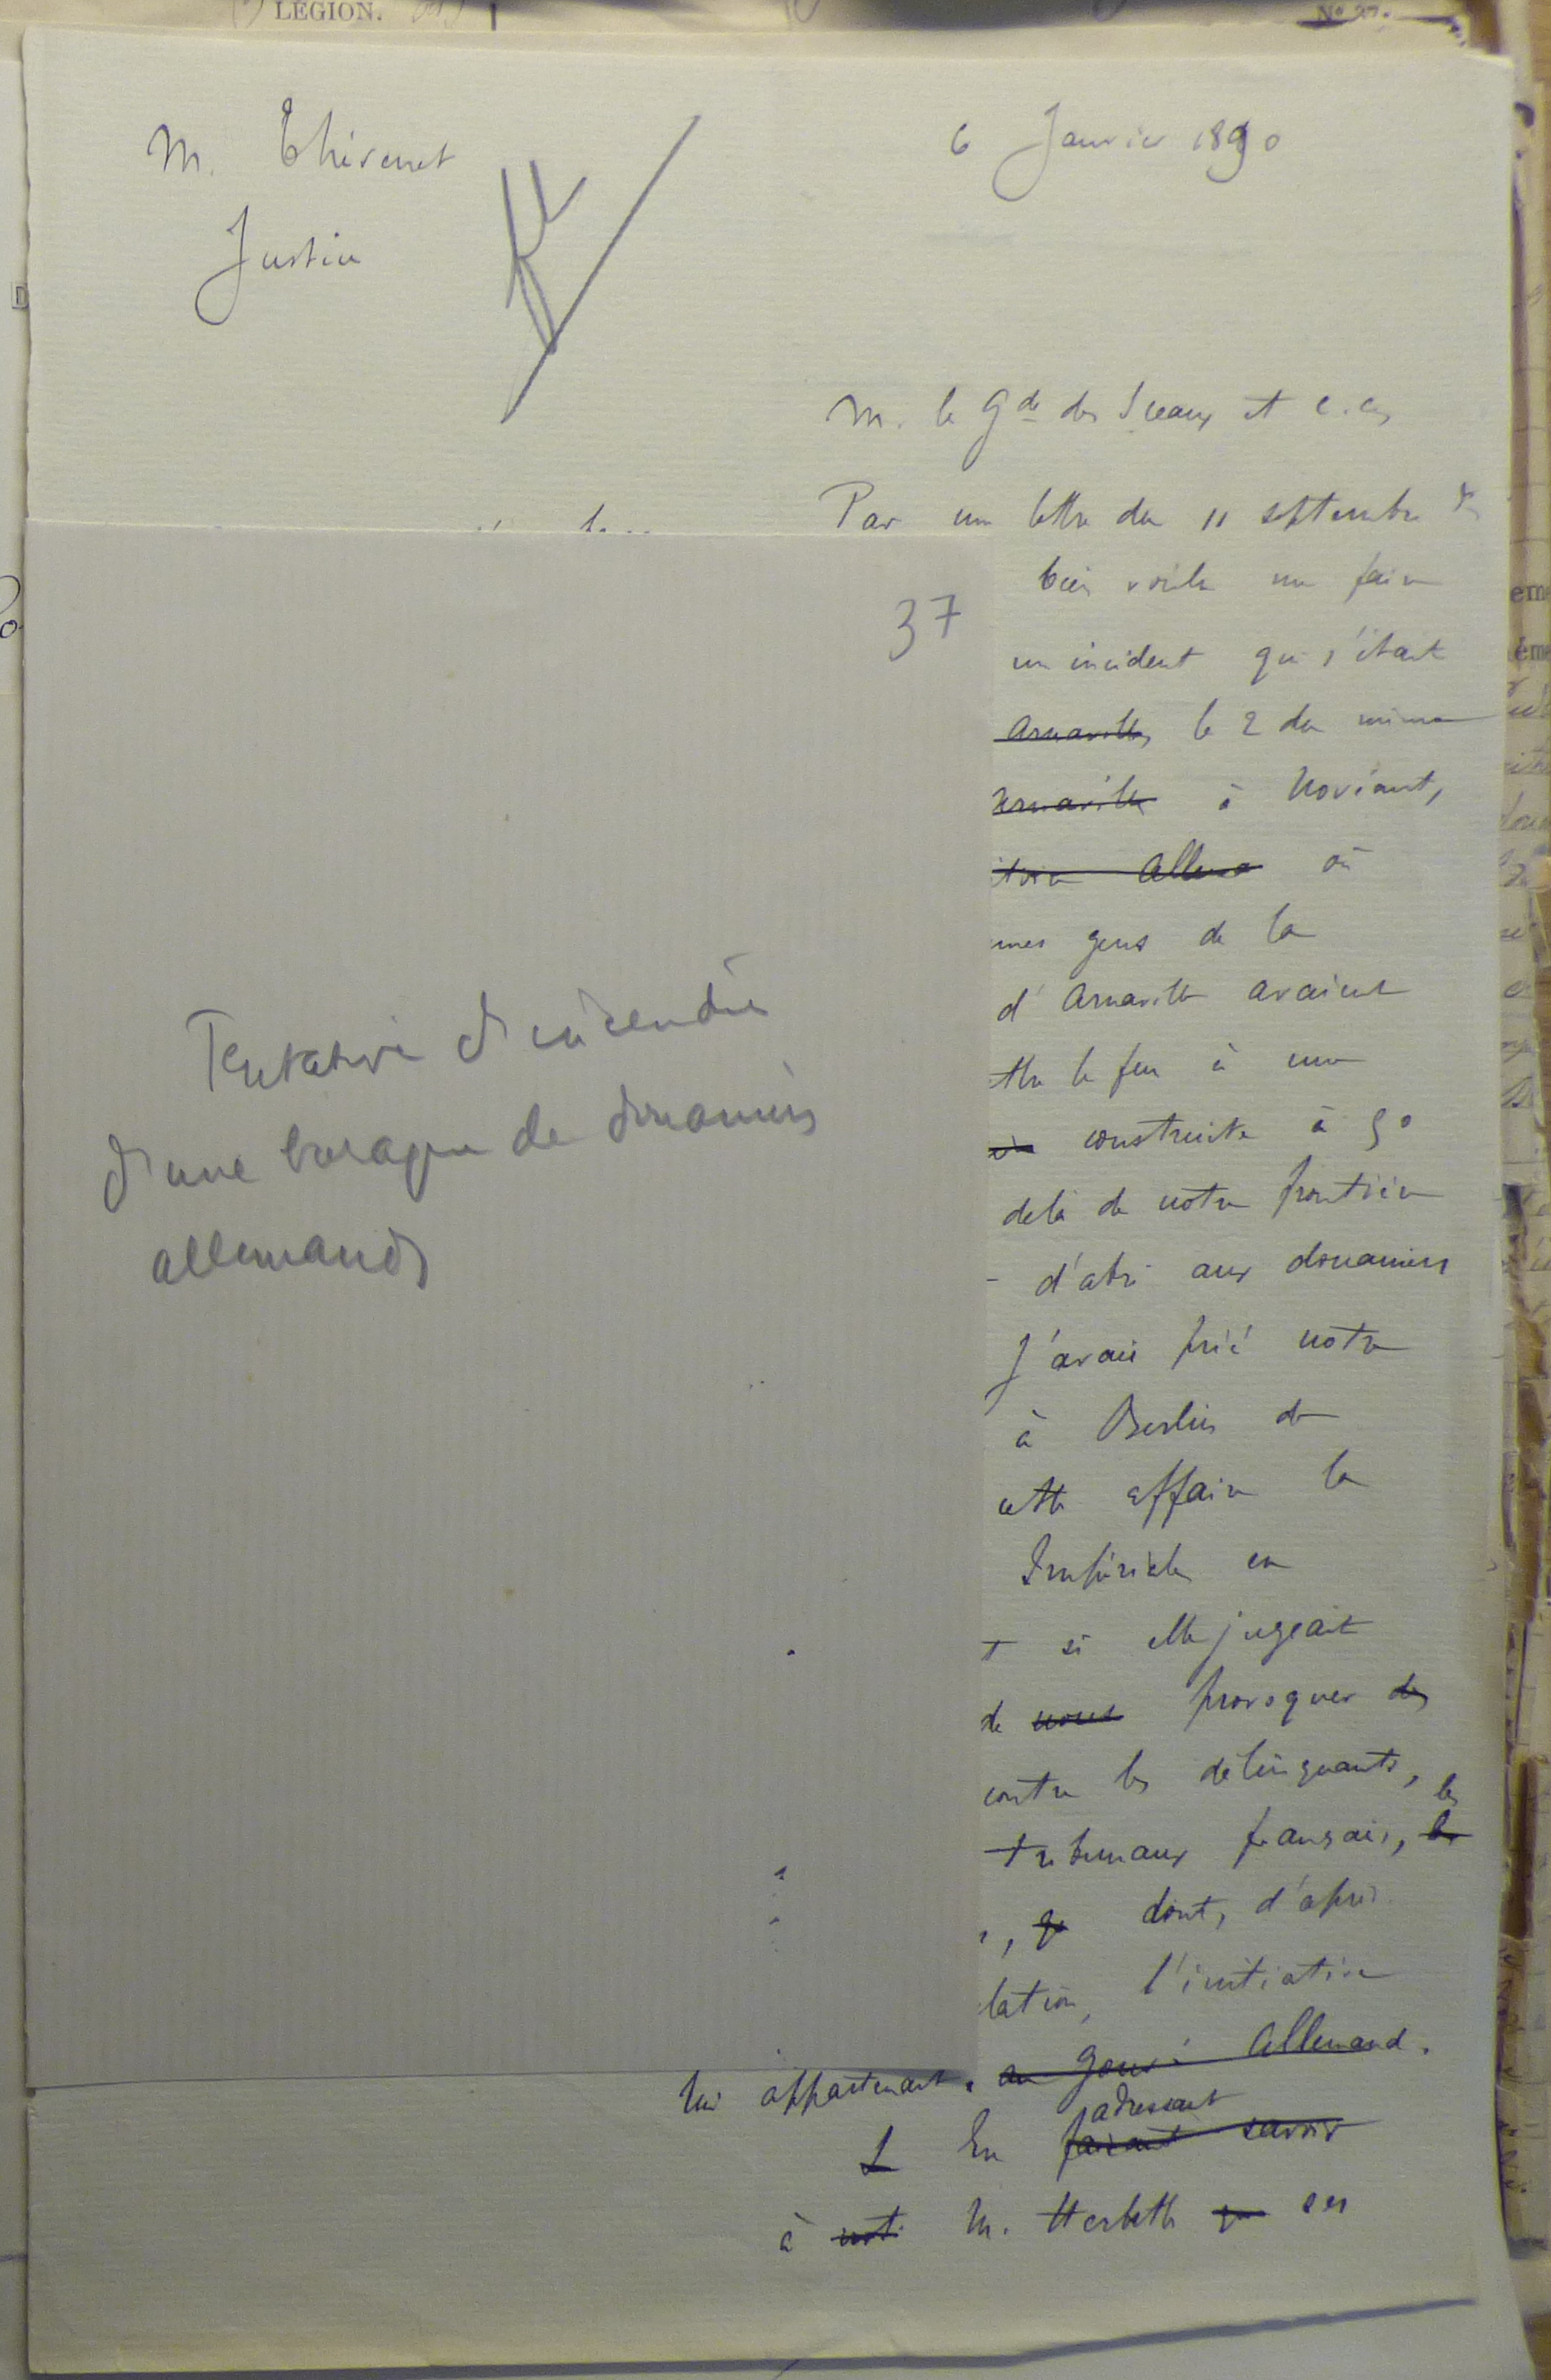 LÉGION.
No 27.
M. Thévenet
Justice
6 Janvier 1890
M. le Gde des Sceaux et c. c.
Par une lettre du 11 septembre
bien voulu me faire
un incident qui s'était
Arnaville, le 2 du même
Arnaville à Novéant,
itoire allema où
unes gens de la
d'Arnaville avaient
ttre le feu à une
construite à 50
delà de notre frontière
d'abri aux douaniers
J'avais prié notre
à Berlin de
cette affaire le
Impériale en
t si elle jugeait
de nous provoquer des
contre les délinquants, les
tribunaux français, les
, q dont, d'après
lation, l'initiative
lui appartenait. au Gouvt allemand.
adressant
L En faisant savoir
à not M. Herbette que ses
37
Tentative d'incendie
d'une baraque de douaniers
allemands